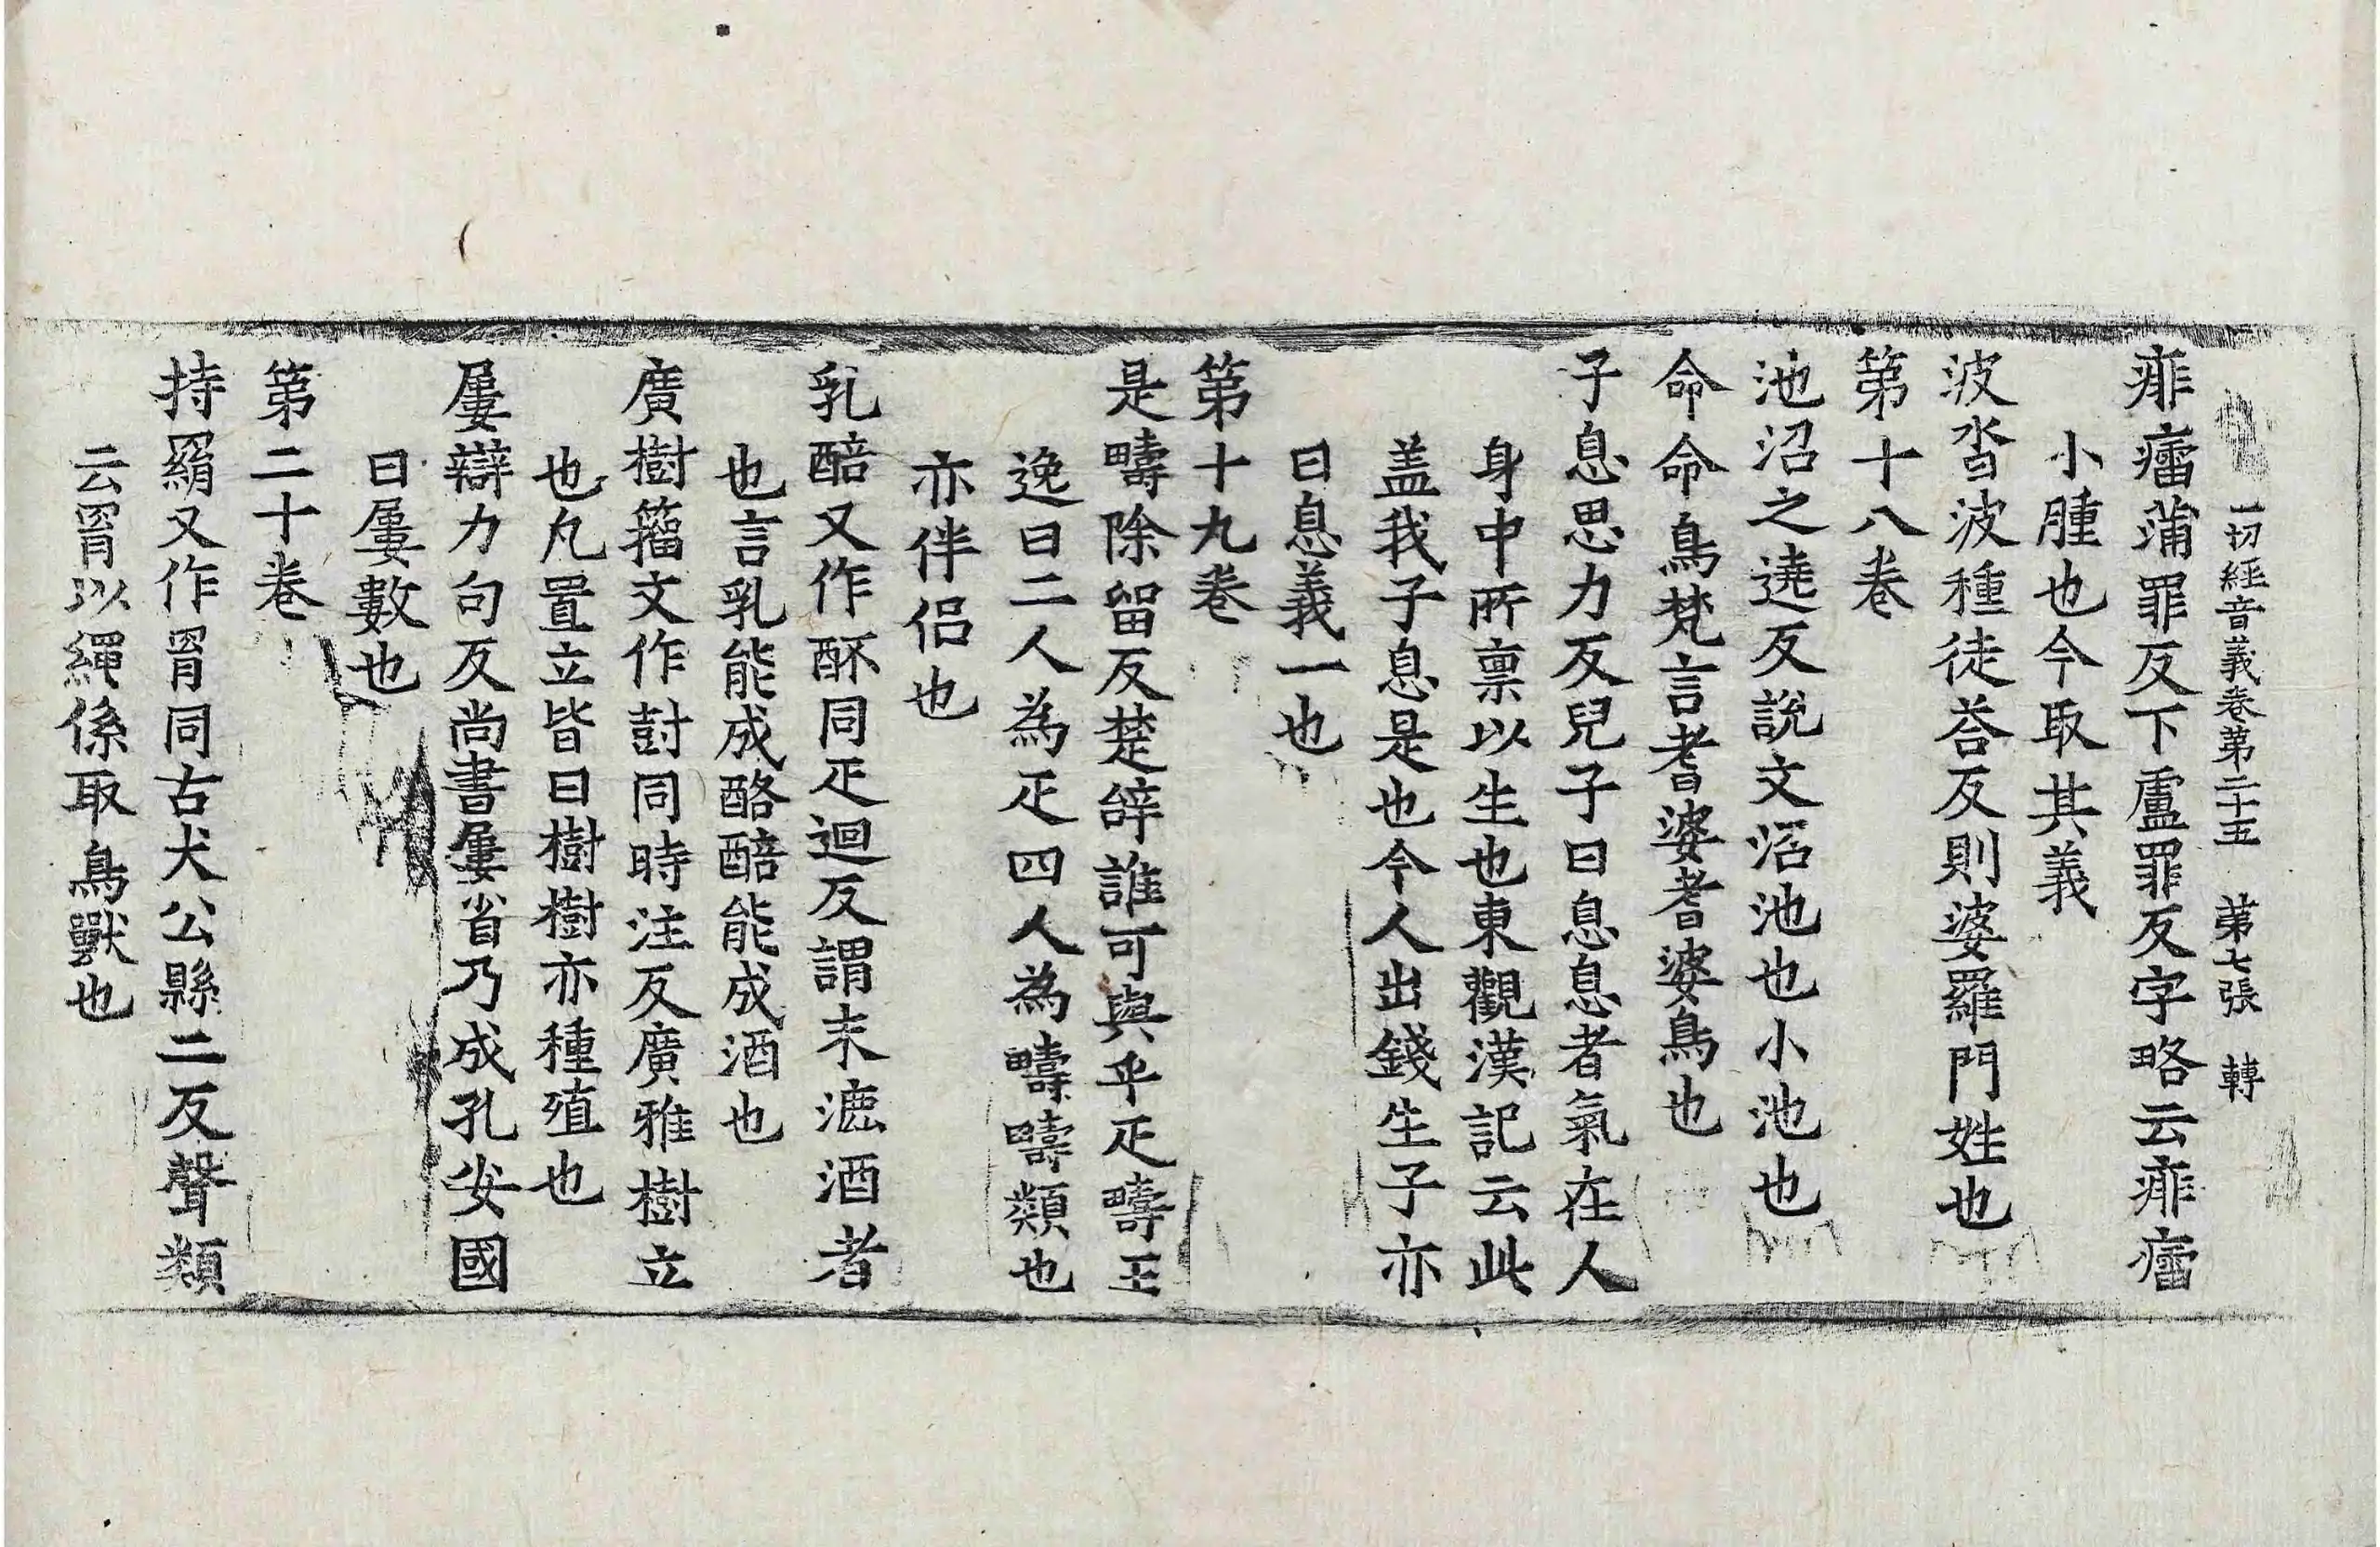 一切經音義卷第二十五 第七張 轉
痱㿔蒲罪反下盧罪反字略云痱㿔
小腫也今取其義
波沓波種徒荅反則婆羅門姓也
第十八卷
池沼之遶反說文沼池也小池也
命命鳥梵言耆婆耆婆鳥也
子息思力反兒子曰息息者氣在人
身中所禀以生也東觀漢記云此
盖我子息是也今人出錢生子亦
曰息義一也
第十九卷
是疇除留反楚辝誰可與乎疋疇王
逸曰二人為疋四人為疇疇類也
亦伴侶也
乳醅又作𨠭同疋迴反謂未漉酒者
也言乳能成酪醅能成酒也
廣樹籀文作尌同時注反廣雅樹立
也凡置立皆曰樹樹亦種殖也
屢辯力句反尚書屢省乃成孔安國
曰屢數也
第二十卷
持羂又作罥同古犬公縣二反聲類
云罥以繩係取鳥獸也